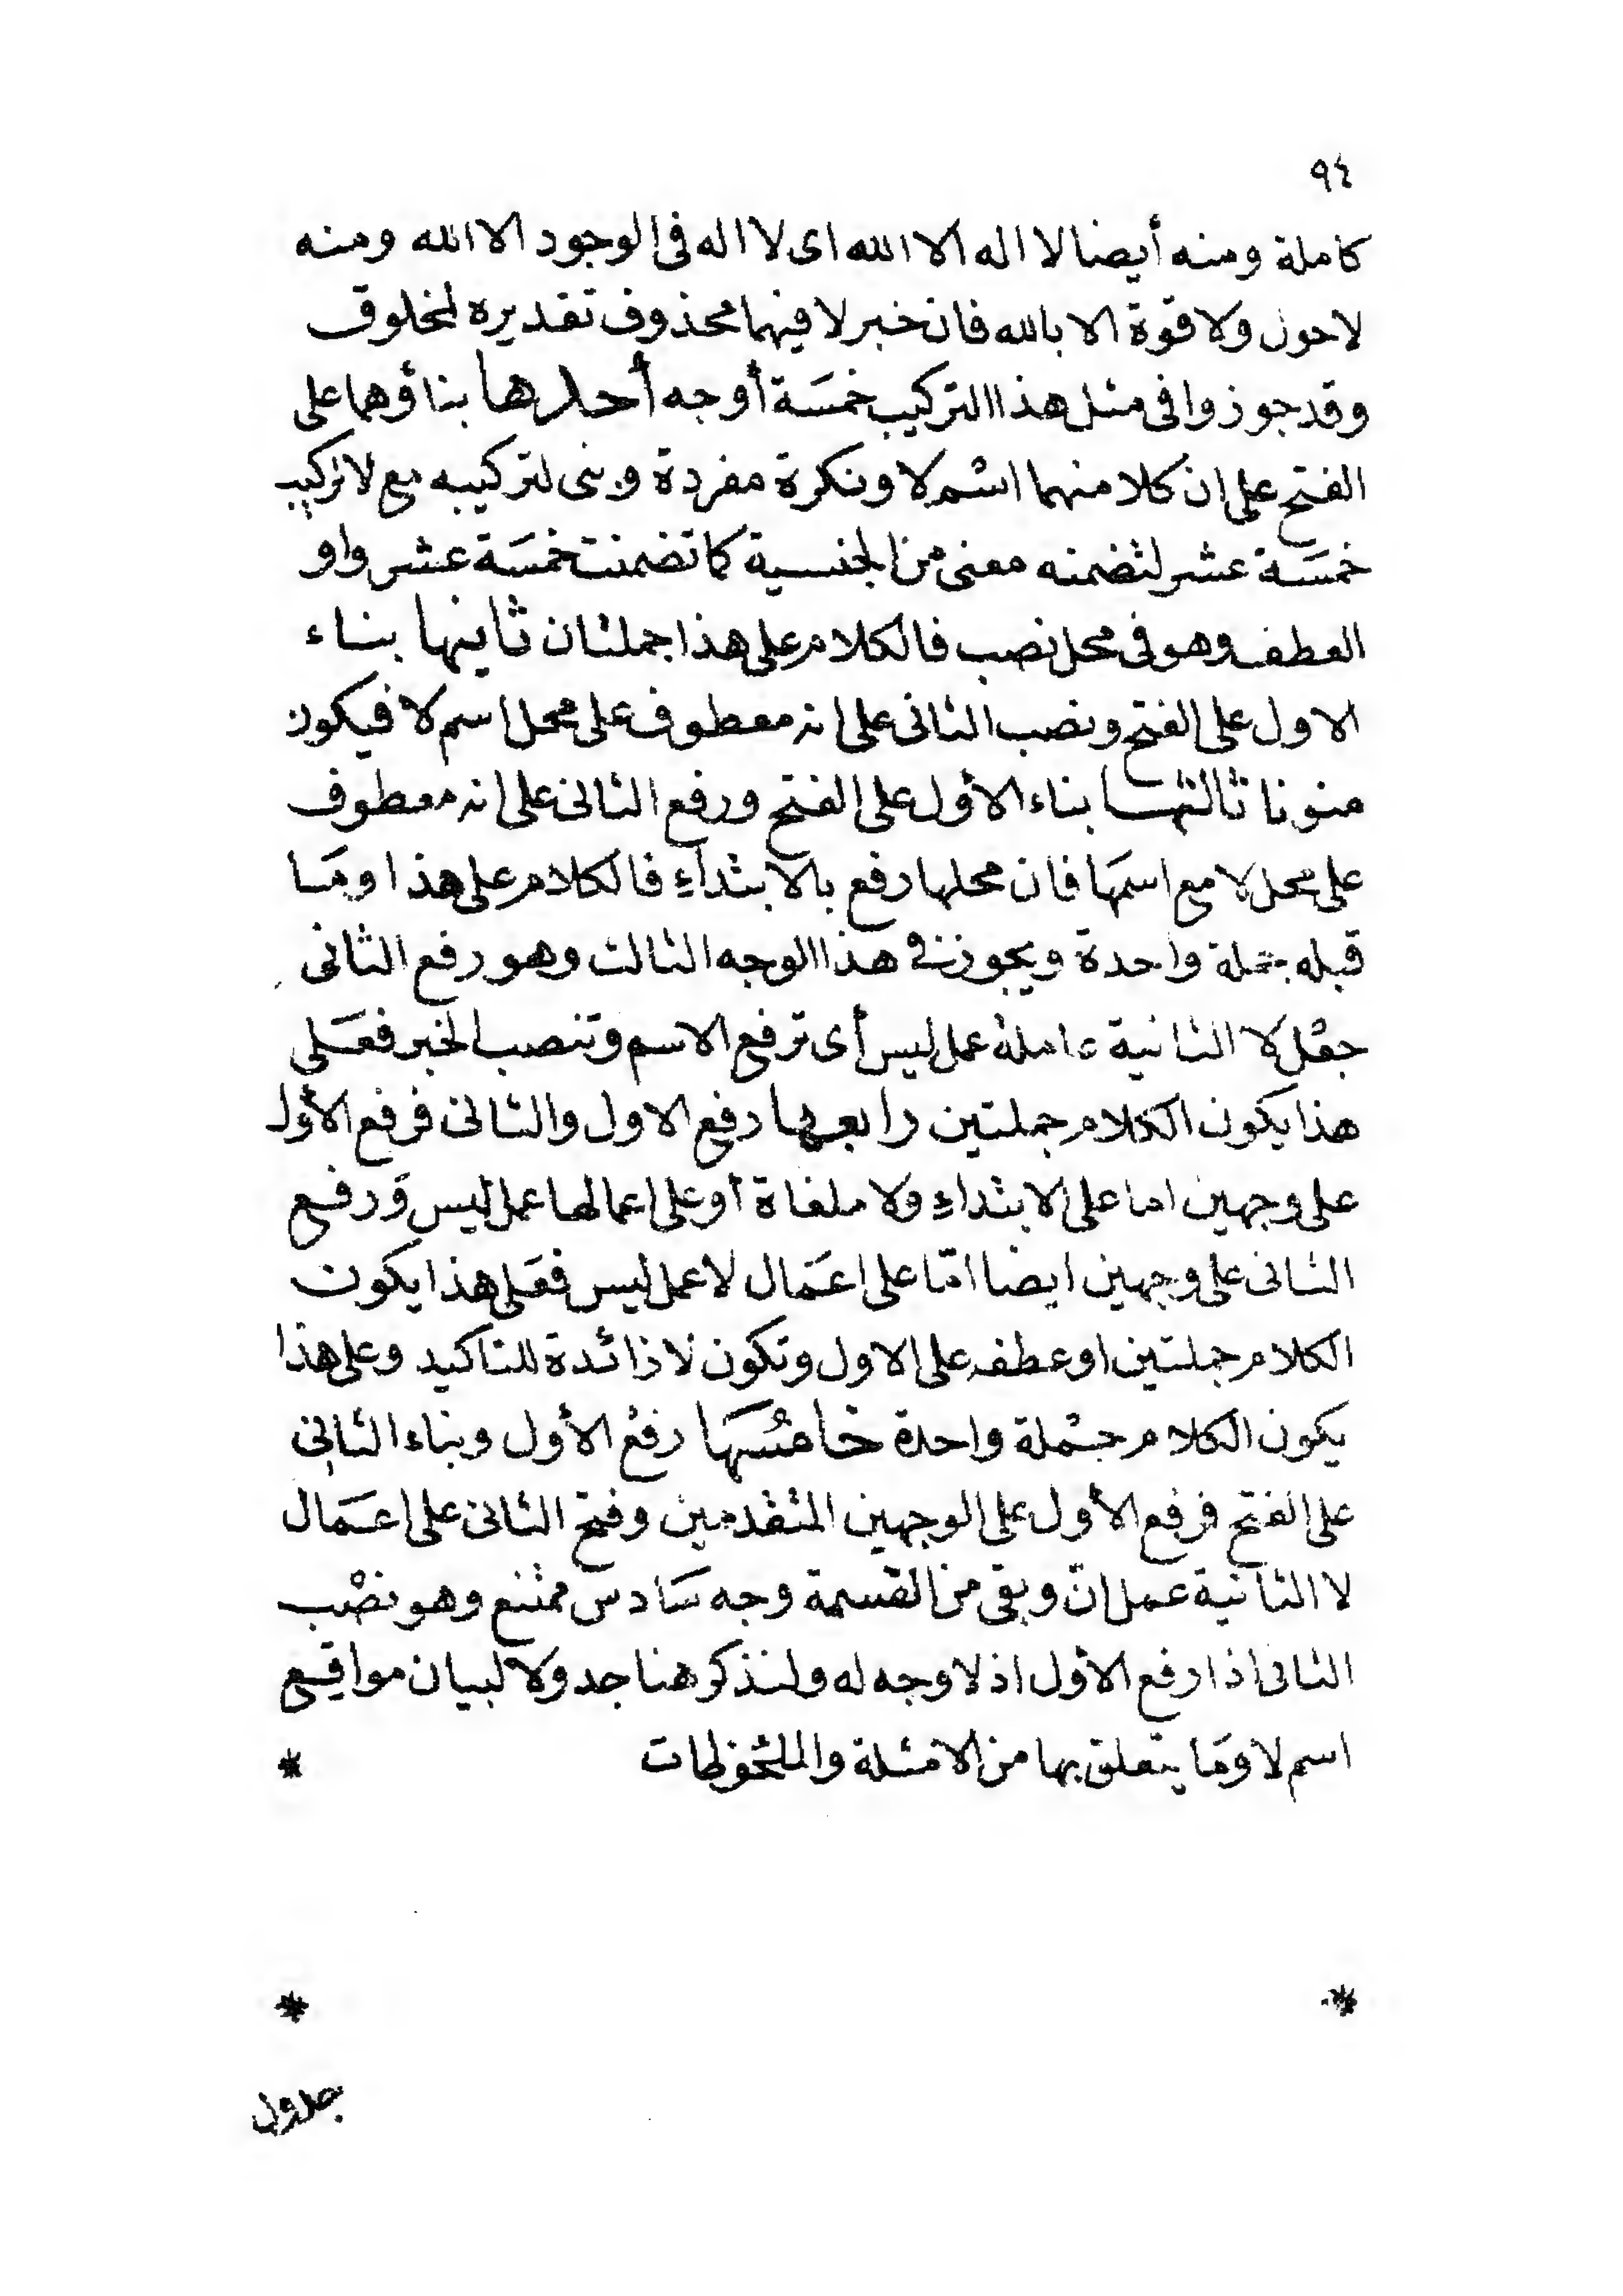 ٩٤
كاملة ومنه أيضا لا اله الا الله اى لا اله فى الوجود الا الله ومنه
لاحول ولا قوة الا بالله فان خبر لا فيهما محذوف تقديره لمخلوق
وقد جوزوا فى مثل هذا التركيب خمسَة أوجه أحدها بناؤهما على
الفتح على ان كلا منهما اسْم لا ونكرة مفردة وبنى لتركيبه مع لا تركيب
خمسَة عشر لتضمنه معنى من الجنسية كما تضمنت خمسَة عشر واو
العطف وهو فى محل نصب فالكلام على هذا جملتان ثانيها بناء
الاول على الفتح ونصب الثانى على انه معطوف على محل اسم لا فيكون
منونا ثالثها بناء الأول على الفتح ورفع الثانى على انه معطوف
على محل لا مع اسمَها فان محلها رفع بالابتداءِ فالكلام على هذا ومَا
قبله جملة واحدة ويجوز فى هذا الوجه الثالث وهو رفع الثانى
جعْل لا الثانية عاملة عمل ليس أى ترفع الاسم وتنصب الخبر فعَلى
هذا يكون الكلام جملتين رابعها رفع الاول والثانى فرفع الأول
على وجهين اما على الابتداءِ ولا ملغاة أو على اعمالها عمل ليس وَرفع
الثانى على وجهين ايضا امّا على اعمَال لا عمل ليس فعَلى هذا يكون
الكلام جملتين او عطفه على الاول وتكون لا زائدة للتاكيد وعلى هذا
يكون الكلام جمْلة واحدة خامسُهَا رفعْ الأول وبناء الثانِى
على الفتح فرفع الأول على الوجهين المتقدمين وفتح الثانى على اعمَال
لا الثانية عمل انّ وبقى من القسمة وجه سَادس ممتنع وهو نصْب
الثانى اذا رفع الأول اذ لا وجه له ولنذكر هنا جدولا لبيان مواقع
اسم لا ومَا يتعلق بها من الامثلة والملحوظات *
* *
جدول